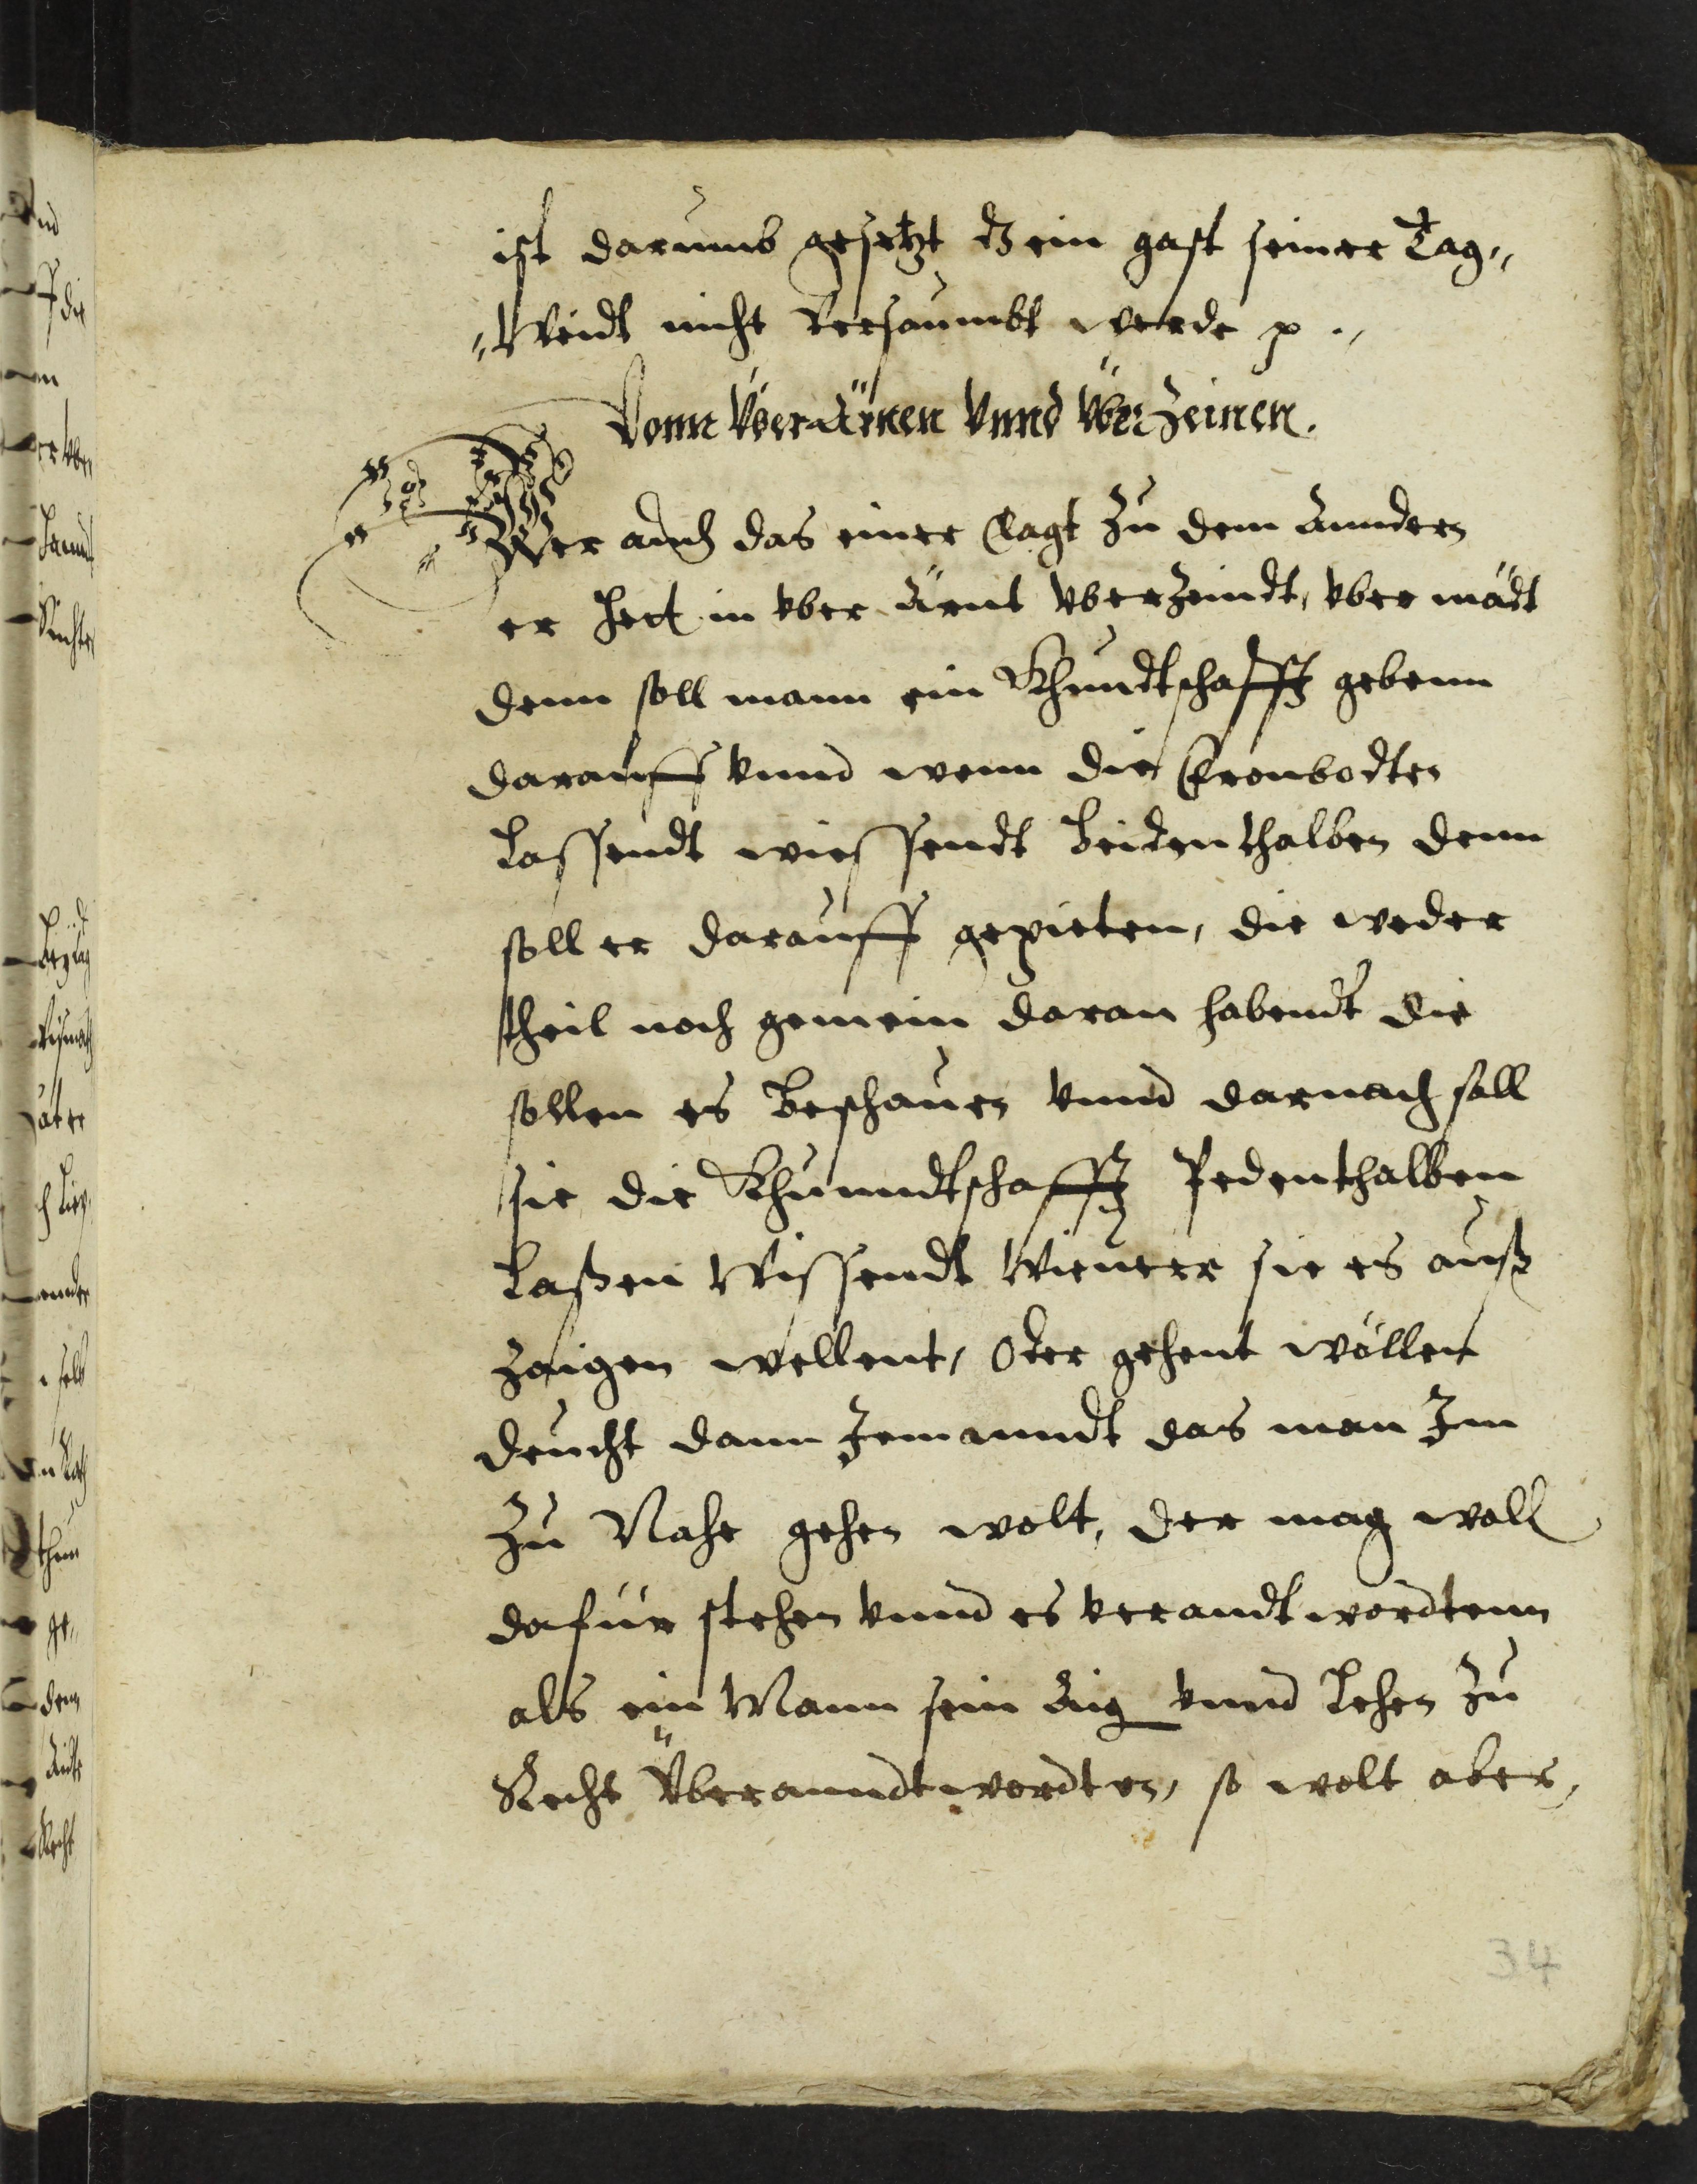 ist darumb gesetzt dz ein gast seiner Tag„
„Weidt nicht Versaumbt werde p .,
Vonn Vberärnen Vnnd Vberzeinen.
Wer auch das einer Clagt zu dem Anndern
er hett in vber ärnt vberzeindt, vber mädt
denn soll mann ein Khundtschafft gebenn
darauff vnnd wenn die Fronbodten
Lassendt wiessendt beidenthalben denn
soll er darauff gepieten, die weder
theil noch gemein daran habendt die
sollen es Beschauen vnnd darnach soll
sie die Khunndtschafft Pedenthalben
Laßen Wissendt Wieuerr sie es auß
zaigen wellent, Oder gehent wöllen
deucht dann Jemanndt das man Im
zu Nahe gehen wolt, der mag woll
dafür stehen vnnd es verandtwordtenn
als ein Mann sein Aig vnnd Lehen zu
Recht Vberanndtwordten, so wolt aber,
34